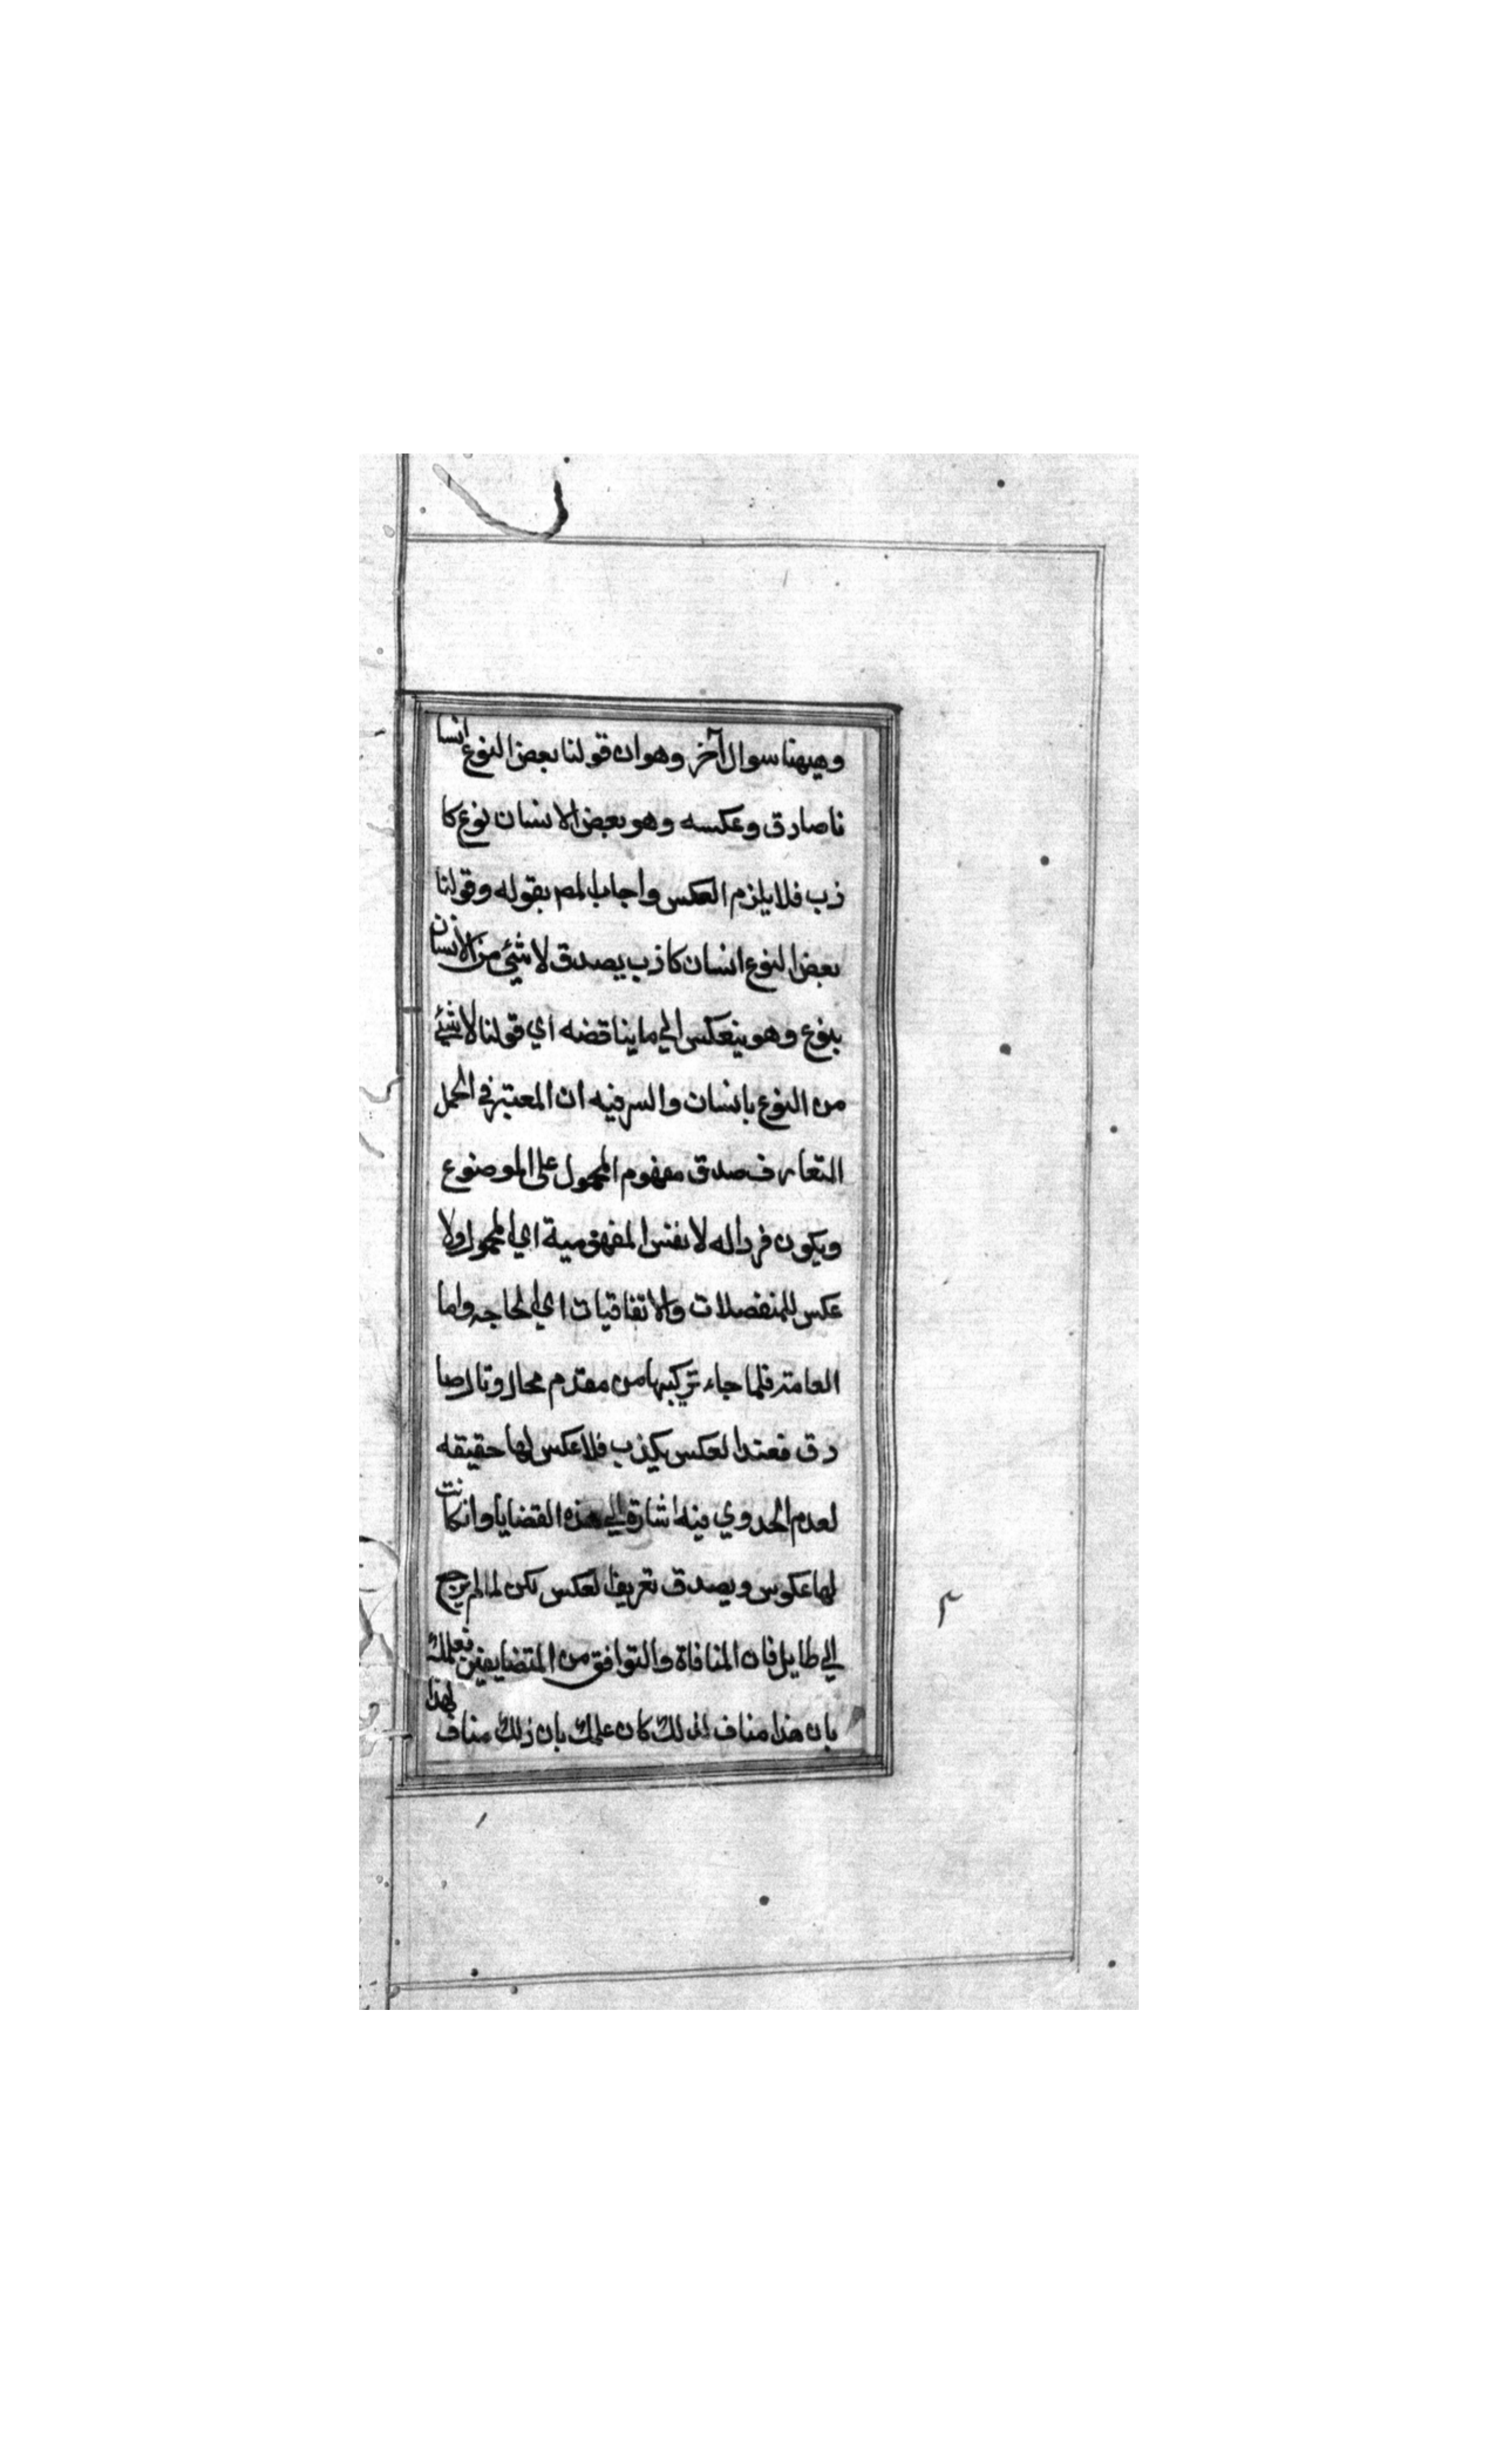 وهيهنا سوال آخر وهو ان قولنا بعض النوع انسا
نا صادق وعكسه وهو بعض الانسان نوع كا
ذب فلا يلزم العكس واجاب المص بقوله وقولنا
بعض النوع انسان كاذب يصدق لا شئي من الانسان
بنوع وهو ينعكس الي ما يناقضه اي قولنا لا شئي
من النوع بانسان والسر فيه ان المعتبر في الحمل
التعارف صدق مفهوم المحمول على الموضوع
ويكون فردا له لا نفس المفهومية اي المحمول ولا
عكس للمنفصلات والاتفاقيات اي الخاجه واما
العامة فلما جاء تركيبها من مقدم محال وتال صا
دق فعند العكس يكذب فلا عكس لها حقيقه
لعدم الجدوي فيه اشارة الي هذه القضايا وانكانت
لها عكوس ويصدق تعريف العكس لكن لما لم يرجع
الي طايل فان المنافاة والتوافق من المتضايفين فعلمك
بان هذا مناف لذلك كان علمك بان ذلك مناف لهذا